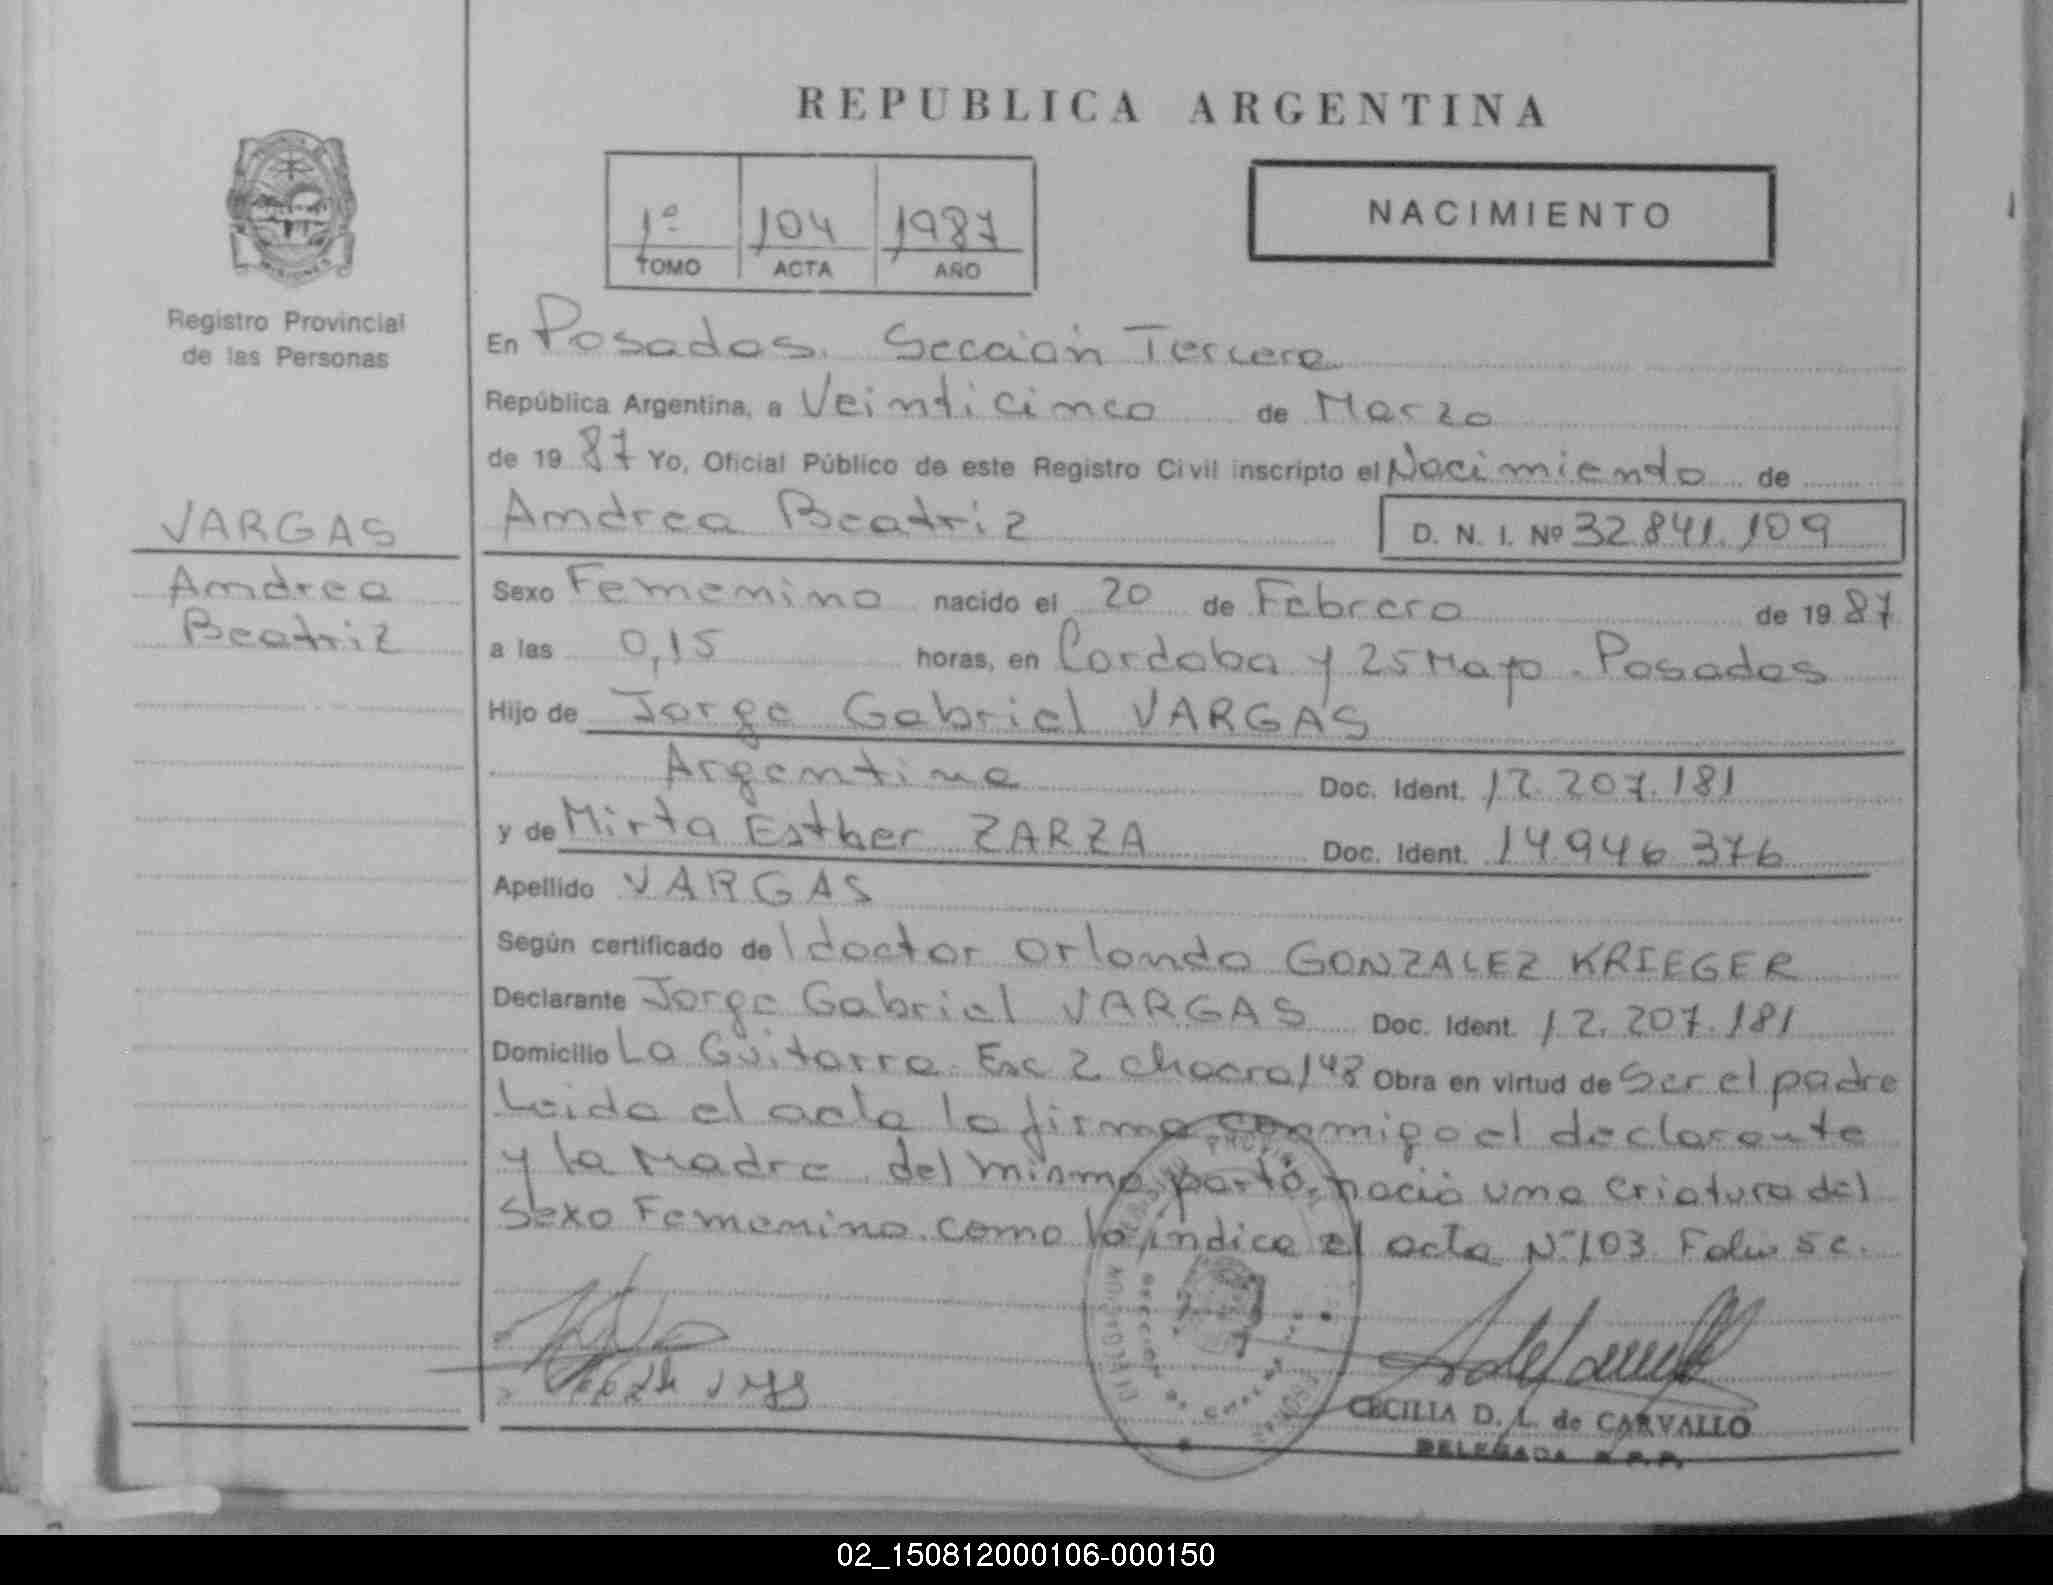 REPUBLICA ARGENTINA
1º 104 1987
TOMO ACTA AÑO
NACIMIENTO
MISIONES
Registro Provincial
de las Personas
En Posadas. Sección Tercera
República Argentina, a Veinticinco de Marzo
de 19 87 Yo, Oficial Público de este Registro Civil inscripto el Nacimiento de
VARGAS
Andrea
Beatriz
Andrea Beatriz
D. N. I. Nº 32.841.109
Sexo Femenino nacido el 20 de Febrero de 19 87
a las 0,15 horas, en Cordoba y 25 Mayo. Posadas
Hijo de Jorge Gabriel VARGAS
Argentina Doc. Ident. 12.207.181
y de Mirta Esther ZARZA Doc. Ident. 14.946.376
Apellido VARGAS
Según certificado del doctor Orlando GONZALEZ KRIEGER
Declarante Jorge Gabriel VARGAS Doc. Ident. 12.207.181
Domicilio La Guitarra. Esc 2 chacra 148 Obra en virtud de Ser el padre
Leida el acta la firma conmigo el declarante
y la Madre. del mismo parto, nació una criatura del
sexo Femenino. como lo indica el acta Nº 103.
CECILIA D. L. de CARVALLO
DELEGADA R.P.P.
02_150812000106-000150